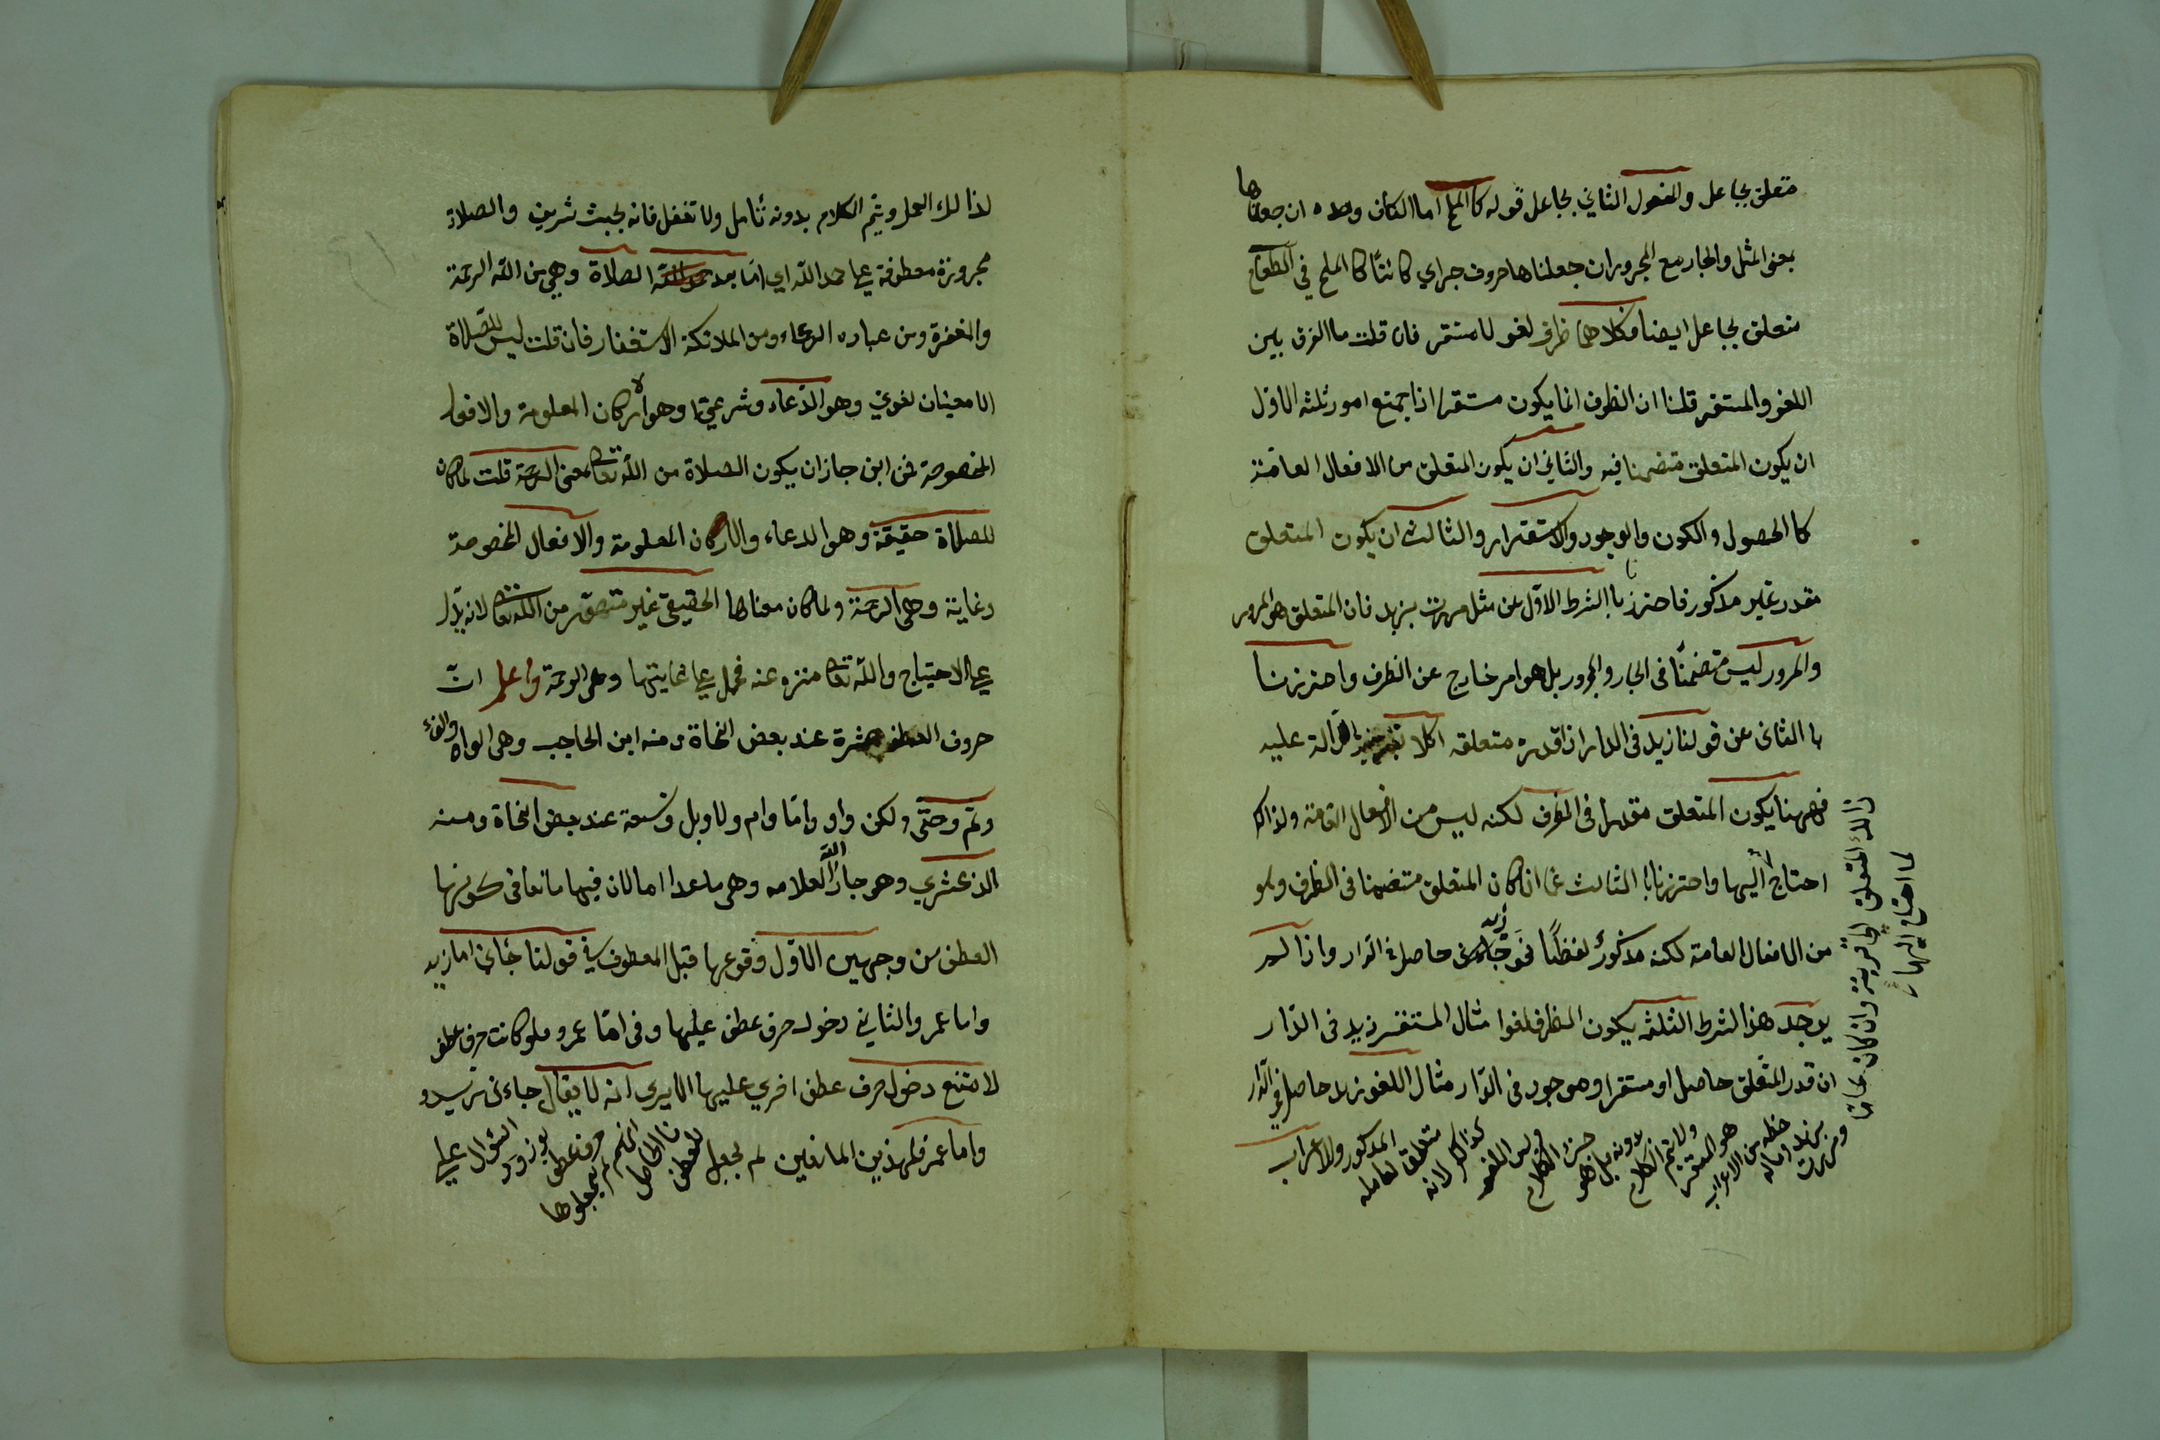 متعلق بجاعل والمفعول الثاني لجاعل قوله كالملح اما الكاف وحده ان جعلناها
بمعنى المثل والجار مع المجرور ان جعلناها حروف جر اي كائنًا كالملح في الطعام
متعلق بجاعل ايضا فكلاهما ظرف لغو لا مستقر فان قلت ما الفرق بين
اللغو والمستقر قلنا ان الظرف انما يكون مستقرا اذا اجتمع امور ثلثه الاوّل
ان يكون المتعلق متضمنا فيه والثاني ان يكون المتعلق من الافعال العامّة
كالحصول والكون والوجود والاستقرار والثالث ان يكون المتعلق
مقدر غير مذكور فاحترزنا باالشرط الاوّل عن مثل مررت بزيد فان المتعلق هو المرور
والمرور ليس متضمنًا في الجار والمجرور بل هو امر خارج عن الظرف واحترزنا
باالثاني عن قولنا زيد في الدار اذا قدر متعلقه اكلا دالة عليه
فههنا يكون المتعلق مقدرا في الظرف لكنه ليس من الافعال العامّة ولذالك
احتاج اليها واحترزنا باالثالث عما اذا كان المتعلق متضمنا في الظرف وهو
من الافعال العامة لكنه مذكورٌ لفظًا نحو زيد حاصل في الدار واذا لم
يوجد هذا الشرط الثلثه يكون الظرف لغوا مثال المستقر زيد في الدّار
ان قدر المتعلق حاصل او مستقر او موجود في الدّار مثال اللغو زيد حاصل في الدّار
ومررت بزيد
حظه من الاعراب
هو المستقر ولا يتم الكلام بدونه بل هو
جزء الكلام وليس اللغو كذالك لانه متعلق لعامله المذكور والاعراب
ذالك المتعلق الى قرينة وان كان عامّا
لما احتاج اليها
لذالك العمل ويتم الكلام بدونه تأمل ولا تغفل فانه بحث شريف والصلاة
مجرورة معطوفة على حمد اللّه اي امّا بعد الصلاة وهي من اللّه الرحمة
والمغفرة ومن عباده الدعاء ومن الملائكة الاستغفار فان قلت ليس للصّلاة
الا معنيان لغويّ وهو الدّعاء وشرعيّ وهو الاركان المعلومة والافعال
المخصوصة فمن اين جاز ان يكون الصلاة من اللّه تعا بمعنى الرحمة قلت لما كان
للصلاة حقيقة وهو الدعاء والاركان المعلومة والافعال المخصوصة
وغاية وهي الرحمة ولما كان معناها الحقيقي غير متصوّر من اللّه تعا لانه يدّل
على الاحتياج واللّه تعا منزه عنه فحمل على غايتها وهي الرحمة واعلم انّ
حروف العطف عشرة عند بعض النحاة ومنه ابن الحاجب وهي الواو والفاء
وثمّ وحتّى ولكن واو وامّا وام ولا وبل وتسعة عند بعض النحاة ومنه
الزمخشري وهو جار اللّه العلامه وهي ما عدا اما لان فيها مانعا في كونها
العطف من وجهين الاوّل وقوعها قبل المعطوف في قولنا جاني اما زيد
واما عمرو والثاني دخول حرف عطف عليها وفي امّا عمرو فلو كانت حرف عطف
لامتنع دخول حرف عطف اخري عليها الا يرى انه لا يقال جاءني زيد و
واما عمر فلهذين المانعين لم يجعل للعطف
حرف عطف
السّؤال على